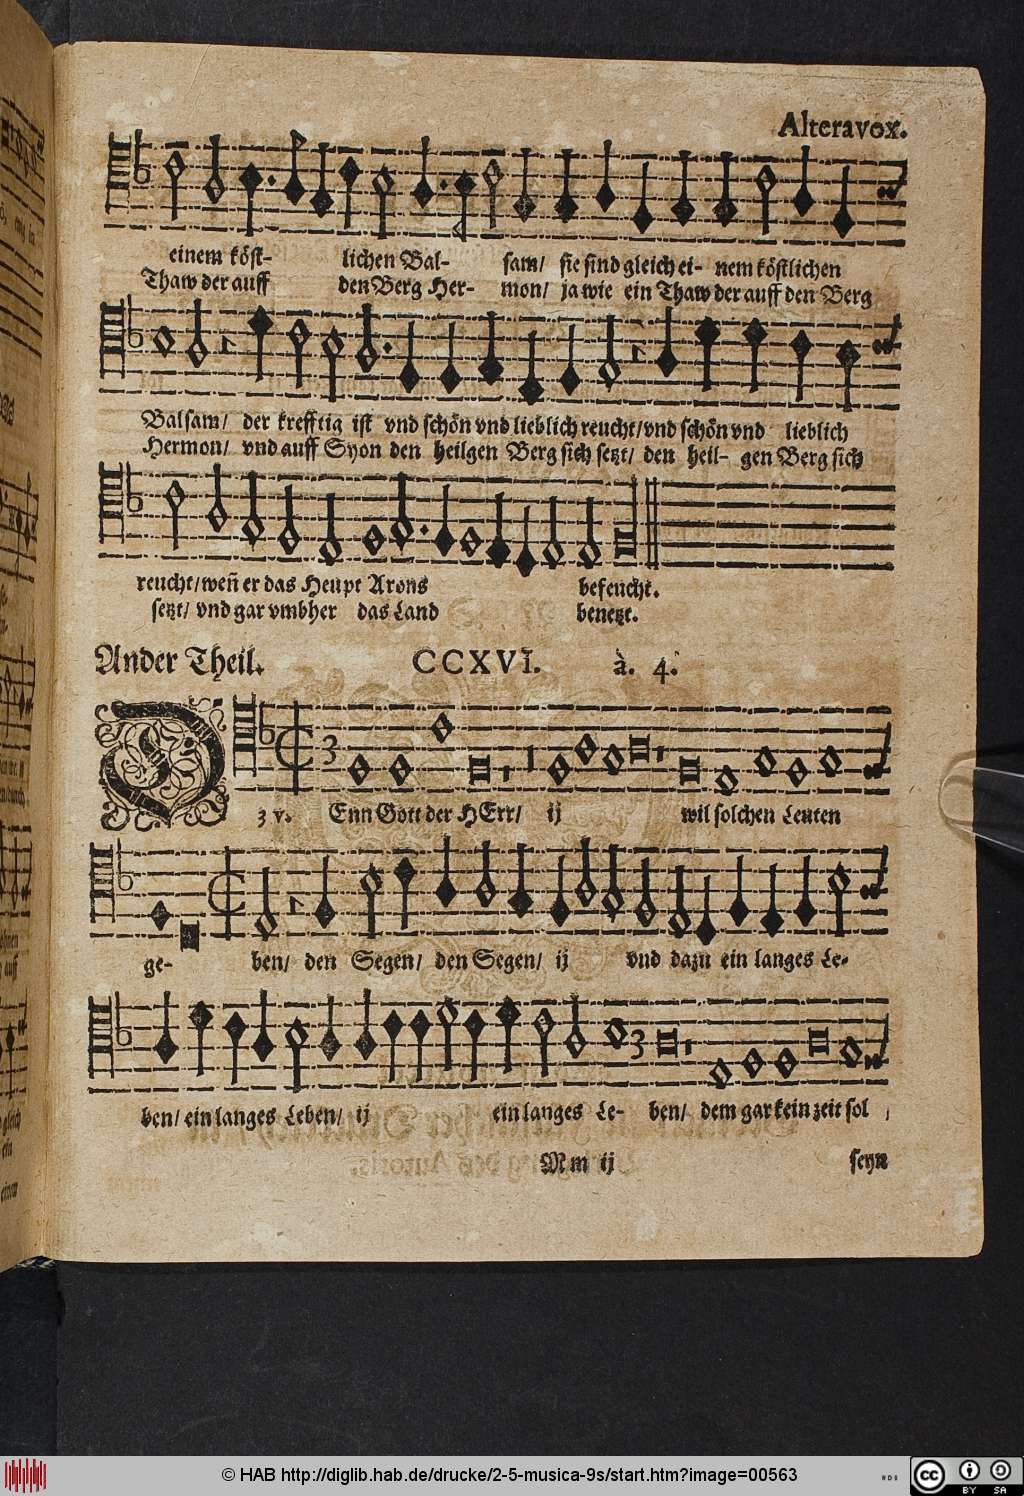 Alteravox.
einem köst- lichen Bal- sam/ sie sind gleich ei- nem köstlichen
Thaw der auff den Berg Her- mon/ ja wie ein Thaw der auff den Berg
Balsam/ der krefftig ist vnd schön vnd lieblich reucht/vnd schön vnd lieblich
Hermon/ vnd auff Syon den heilgen Berg sich setzt/ den heil- gen Berg sich
reucht/weñ er das Heupt Arons befeucht.
setzt/ vnd gar vmbher das Land benetzt.
Ander Theil. CCXVI. à. 4.
D
3 v. Enn Gott der HErr/ ij wil solchen Leuten
ge- ben/ den Segen/ den Segen/ ij vnd dazu ein langes Le-
ben/ ein langes Leben/ ij ein langes Le- ben/ dem gar kein zeit sol
Mm ij seyn
© HAB http://diglib.hab.de/drucke/2-5-musica-9s/start.htm?image=00563
cc BY SA